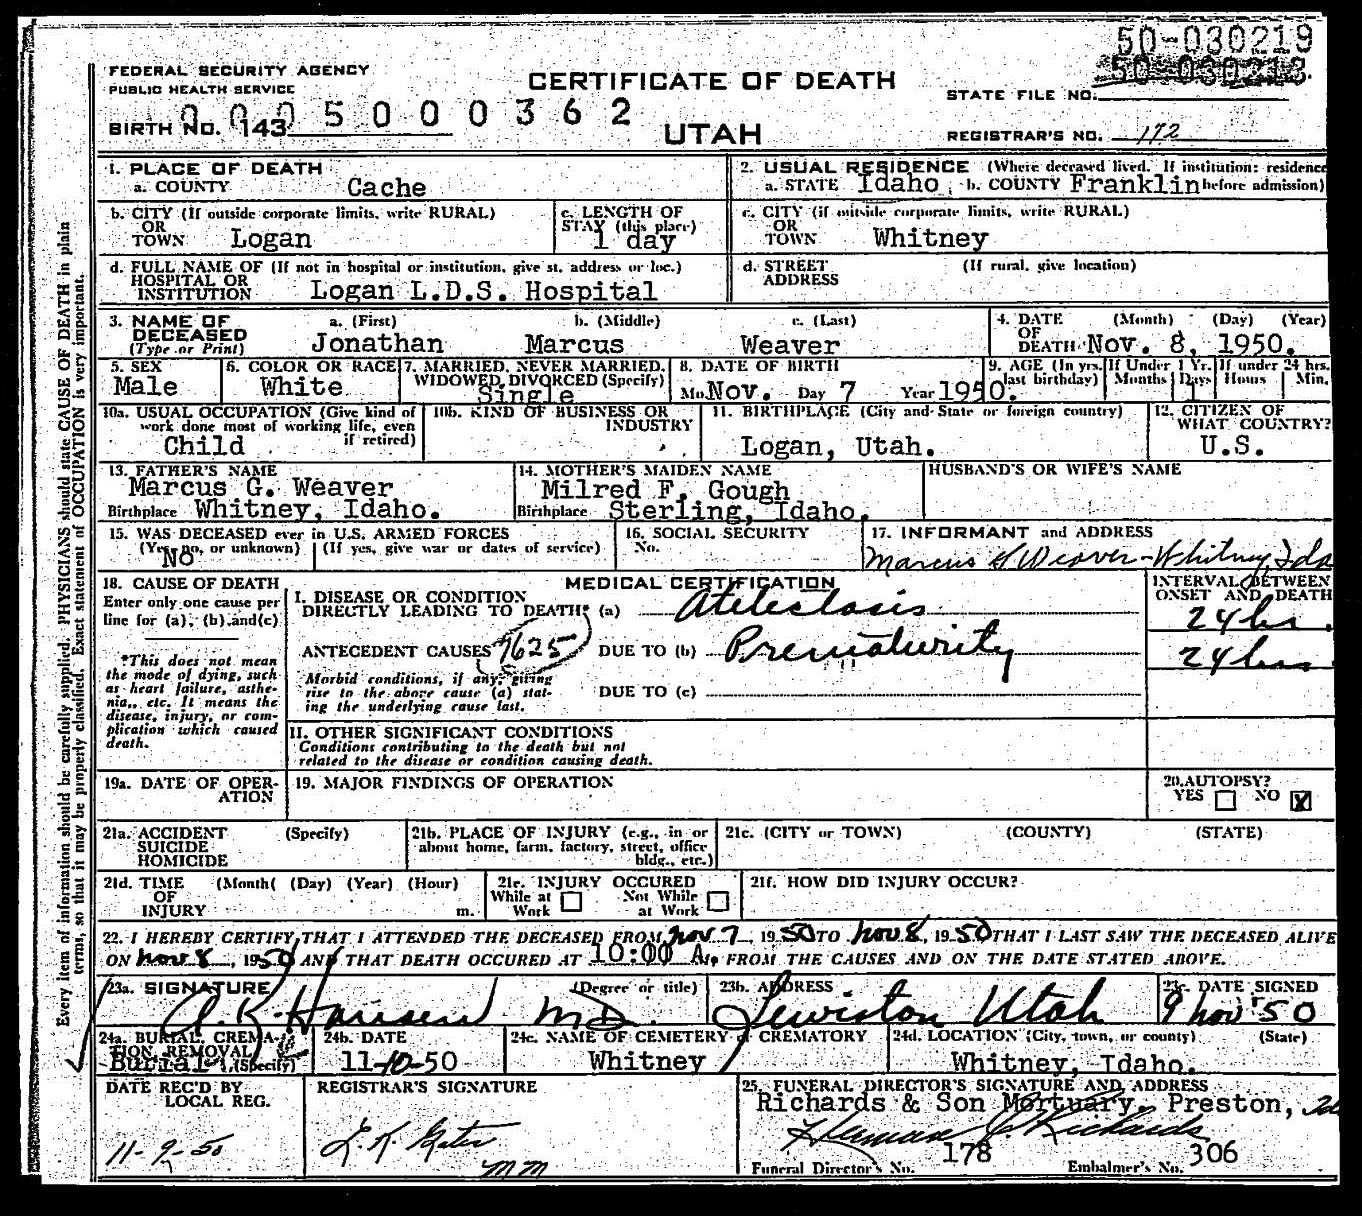 50-030219
50-030218
FEDERAL SECURITY AGENCY
PUBLIC HEALTH SERVICE
CERTIFICATE OF DEATH
STATE FILE NO.
0005000362
BIRTH NO. 143
UTAH
REGISTRAR'S NO. 172
1. PLACE OF DEATH
a. COUNTY Cache
2. USUAL RESIDENCE (Where deceased lived. If institution: residence
a. STATE Idaho b. COUNTY Franklin before admission)
b. CITY (If outside corporate limits, write RURAL)
OR
TOWN Logan
c. LENGTH OF
STAY (this place)
1 day
c. CITY (if outside corporate limits, write RURAL)
OR
TOWN Whitney
d. FULL NAME OF (If not in hospital or institution, give st. address or loc.)
HOSPITAL OR
INSTITUTION Logan L.D.S. Hospital
d. STREET (If rural, give location)
ADDRESS
3. NAME OF DECEASED a. (First) b. (Middle) c. (Last)
(Type or Print) Jonathan Marcus Weaver
4. DATE (Month) (Day) (Year)
OF
DEATH Nov. 8, 1950.
5. SEX
Male
6. COLOR OR RACE
White
7. MARRIED, NEVER MARRIED,
WIDOWED, DIVORCED (Specify)
Single
8. DATE OF BIRTH
Mo. Nov. Day 7 Year 1950.
9. AGE (In yrs. last birthday)
If Under 1 Yr. Months Days 1
If under 24 hrs. Hours Min.
10a. USUAL OCCUPATION (Give kind of
work done most of working life, even
if retired)
Child
10b. KIND OF BUSINESS OR
INDUSTRY
11. BIRTHPLACE (City and State or foreign country)
Logan, Utah.
12. CITIZEN OF
WHAT COUNTRY?
U.S.
13. FATHER'S NAME
Marcus G. Weaver
Birthplace Whitney, Idaho.
14. MOTHER'S MAIDEN NAME
Milred F. Gough
Birthplace Sterling, Idaho.
HUSBAND'S OR WIFE'S NAME
15. WAS DECEASED ever in U.S. ARMED FORCES
(Yes, no, or unknown) (If yes, give war or dates of service)
No
16. SOCIAL SECURITY
No.
17. INFORMANT and ADDRESS
Marcus G Weaver - Whitney, Ida
18. CAUSE OF DEATH
Enter only one cause per
line for (a), (b) and (c)
*This does not mean
the mode of dying, such
as heart failure, asthe-
nia, etc. It means the
disease, injury, or com-
plication which caused
death.
MEDICAL CERTIFICATION
INTERVAL BETWEEN
ONSET AND DEATH
I. DISEASE OR CONDITION
DIRECTLY LEADING TO DEATH* (a) Atelectasis
24 hrs.
ANTECEDENT CAUSES 7625 DUE TO (b) Prematurity
24 hrs
Morbid conditions, if any, giving
rise to the above cause (a) stat-
ing the underlying cause last.
DUE TO (c)
II. OTHER SIGNIFICANT CONDITIONS
Conditions contributing to the death but not
related to the disease or condition causing death.
19a. DATE OF OPER-
ATION
19. MAJOR FINDINGS OF OPERATION
20. AUTOPSY?
YES NO X
21a. ACCIDENT (Specify)
SUICIDE
HOMICIDE
21b. PLACE OF INJURY (e.g., in or
about home, farm, factory, street, office
bldg., etc.)
21c. (CITY or TOWN) (COUNTY) (STATE)
21d. TIME (Month) (Day) (Year) (Hour)
OF
INJURY m.
21e. INJURY OCCURED
While at Work Not While at Work
21f. HOW DID INJURY OCCUR?
22. I HEREBY CERTIFY THAT I ATTENDED THE DECEASED FROM Nov 7, 1950 TO Nov 8, 1950 THAT I LAST SAW THE DECEASED ALIVE
ON Nov 8, 1950 AND THAT DEATH OCCURED AT 10:00 A. FROM THE CAUSES AND ON THE DATE STATED ABOVE.
23a. SIGNATURE (Degree or title)
A. K. Hansen MD.
23b. ADDRESS
Lewiston Utah
23c. DATE SIGNED
9 Nov 50
24a. BURIAL, CREMA-
TION, REMOVAL (Specify)
Burial
24b. DATE
11-10-50
24c. NAME OF CEMETERY or CREMATORY
Whitney
24d. LOCATION (City, town, or county) (State)
Whitney, Idaho.
DATE REC'D BY
LOCAL REG.
11-9-50
REGISTRAR'S SIGNATURE
mm
25. FUNERAL DIRECTOR'S SIGNATURE AND ADDRESS
Richards & Son Mortuary, Preston, Ida
Richards
Funeral Director's No. 178 Embalmer's No. 306
Every item of information should be carefully supplied. PHYSICIANS should state CAUSE OF DEATH in plain
terms, so that it may be properly classified. Exact statement of OCCUPATION is very important.